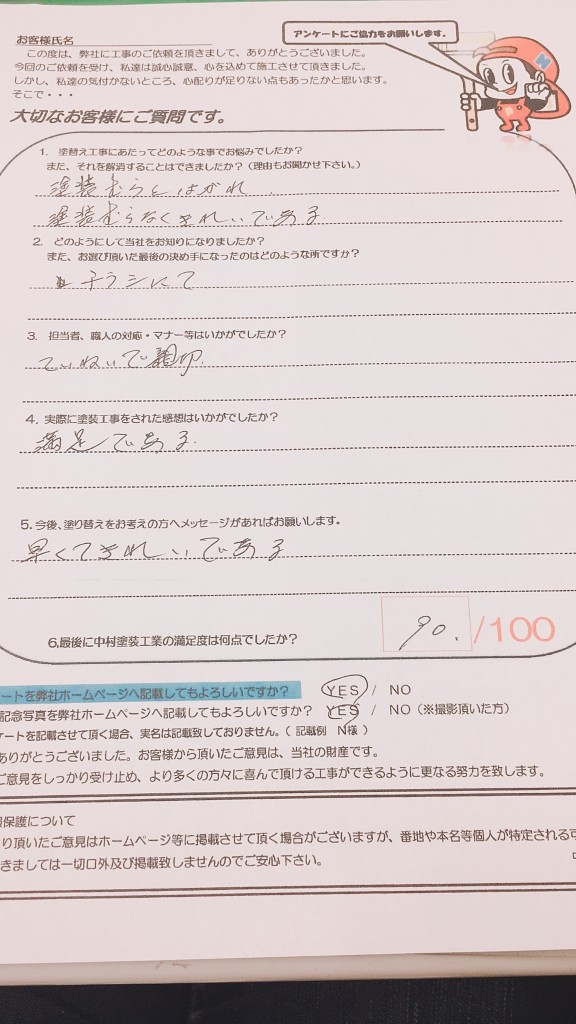 アンケートにご協力をお願いします。
お客様氏名
この度は、弊社に工事のご依頼を頂きまして、ありがとうございました。
今回のご依頼を受け、私達は誠心誠意、心を込めて施工させて頂きました。
しかし、私達の気付かないところ、心配りが足りない点もあったかと思います。
そこで・・・
大切なお客様にご質問です。
1. 塗替え工事にあたってどのような事でお悩みでしたか?
また、それを解消することはできましたか?(理由もお聞かせ下さい。)
塗装むらとはがれ
塗装むらなくきれいである
2. どのようにして当社をお知りになりましたか?
また、お選び頂いた最後の決め手になったのはどのような所ですか?
チラシにて
3. 担当者、職人の対応・マナー等はいかがでしたか?
ていねいで親切.
4. 実際に塗装工事をされた感想はいかがでしたか?
満足である.
5. 今後、塗り替えをお考えの方へメッセージがあればお願いします。
早くてきれいである
6,最後に中村塗装工業の満足度は何点でしたか?
90. /100
ートを弊社ホームページへ記載してもよろしいですか? YES / NO
記念写真を弊社ホームページへ記載してもよろしいですか? YES / NO(※撮影頂いた方)
ケートを記載させて頂く場合、実名は記載致しておりません。( 記載例 N様 )
ありがとうございました。お客様から頂いたご意見は、当社の財産です。
ご意見をしっかり受け止め、より多くの方々に喜んで頂ける工事ができるように更なる努力を致します。
保護について
り頂いたご意見はホームページ等に掲載させて頂く場合がございますが、番地や本名等個人が特定される
きましては一切口外及び掲載致しませんのでご安心下さい。